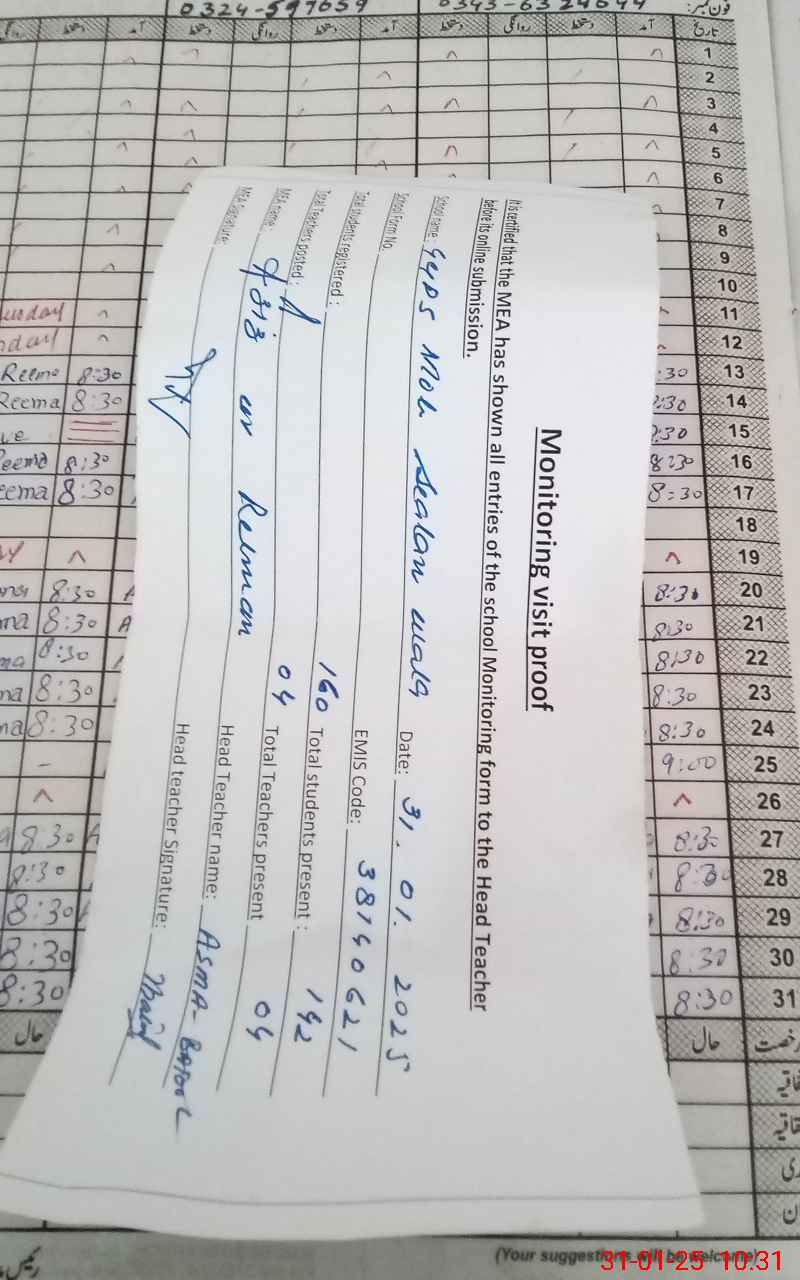 0324-597659
0343-6324644
فون نمبر:
تاریخ
آمد
دستخط
روانگی
دستخط
آمد
دستخط
روانگی
دستخط
آمد
1
2
3
4
5
6
7
8
9
10
11
12
13 :30 Reema 8:30
14 :30 Reema 8:30
15 :30
16 8:30 8:30
17 8:30 8:30
18
19
20 8:30 8:30
21 8:30 8:30
22 8:30 8:30
23 8:30 8:30
24 8:30 8:30
25 9:00 -
26
27 8:30 8:30
28 8:30 8:30
29 8:30 8:30
30 8:30 8:30
31 8:30 8:30
رخصت حال حال
Monitoring visit proof
It is certified that the MEA has shown all entries of the school Monitoring form to the Head Teacher
before its online submission.
School name: GGPS Moh Sealan wala Date: 31.01.2025
School Form No. EMIS Code: 38140621
Total students registered: 160 Total students present: 142
Total Teachers posted: 04 Total Teachers present 04
MEA name: Aziz ur Rehman Head Teacher name: ASMA-BATOOL
MEA Signature: Head teacher Signature:
(Your suggestions will be welcome)
31-01-25 10.31